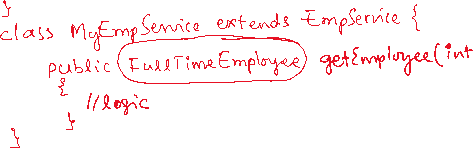 }
class MyEmpService extends EmpService {
public FullTimeEmployee getEmployee(int
{
//logic
}
}